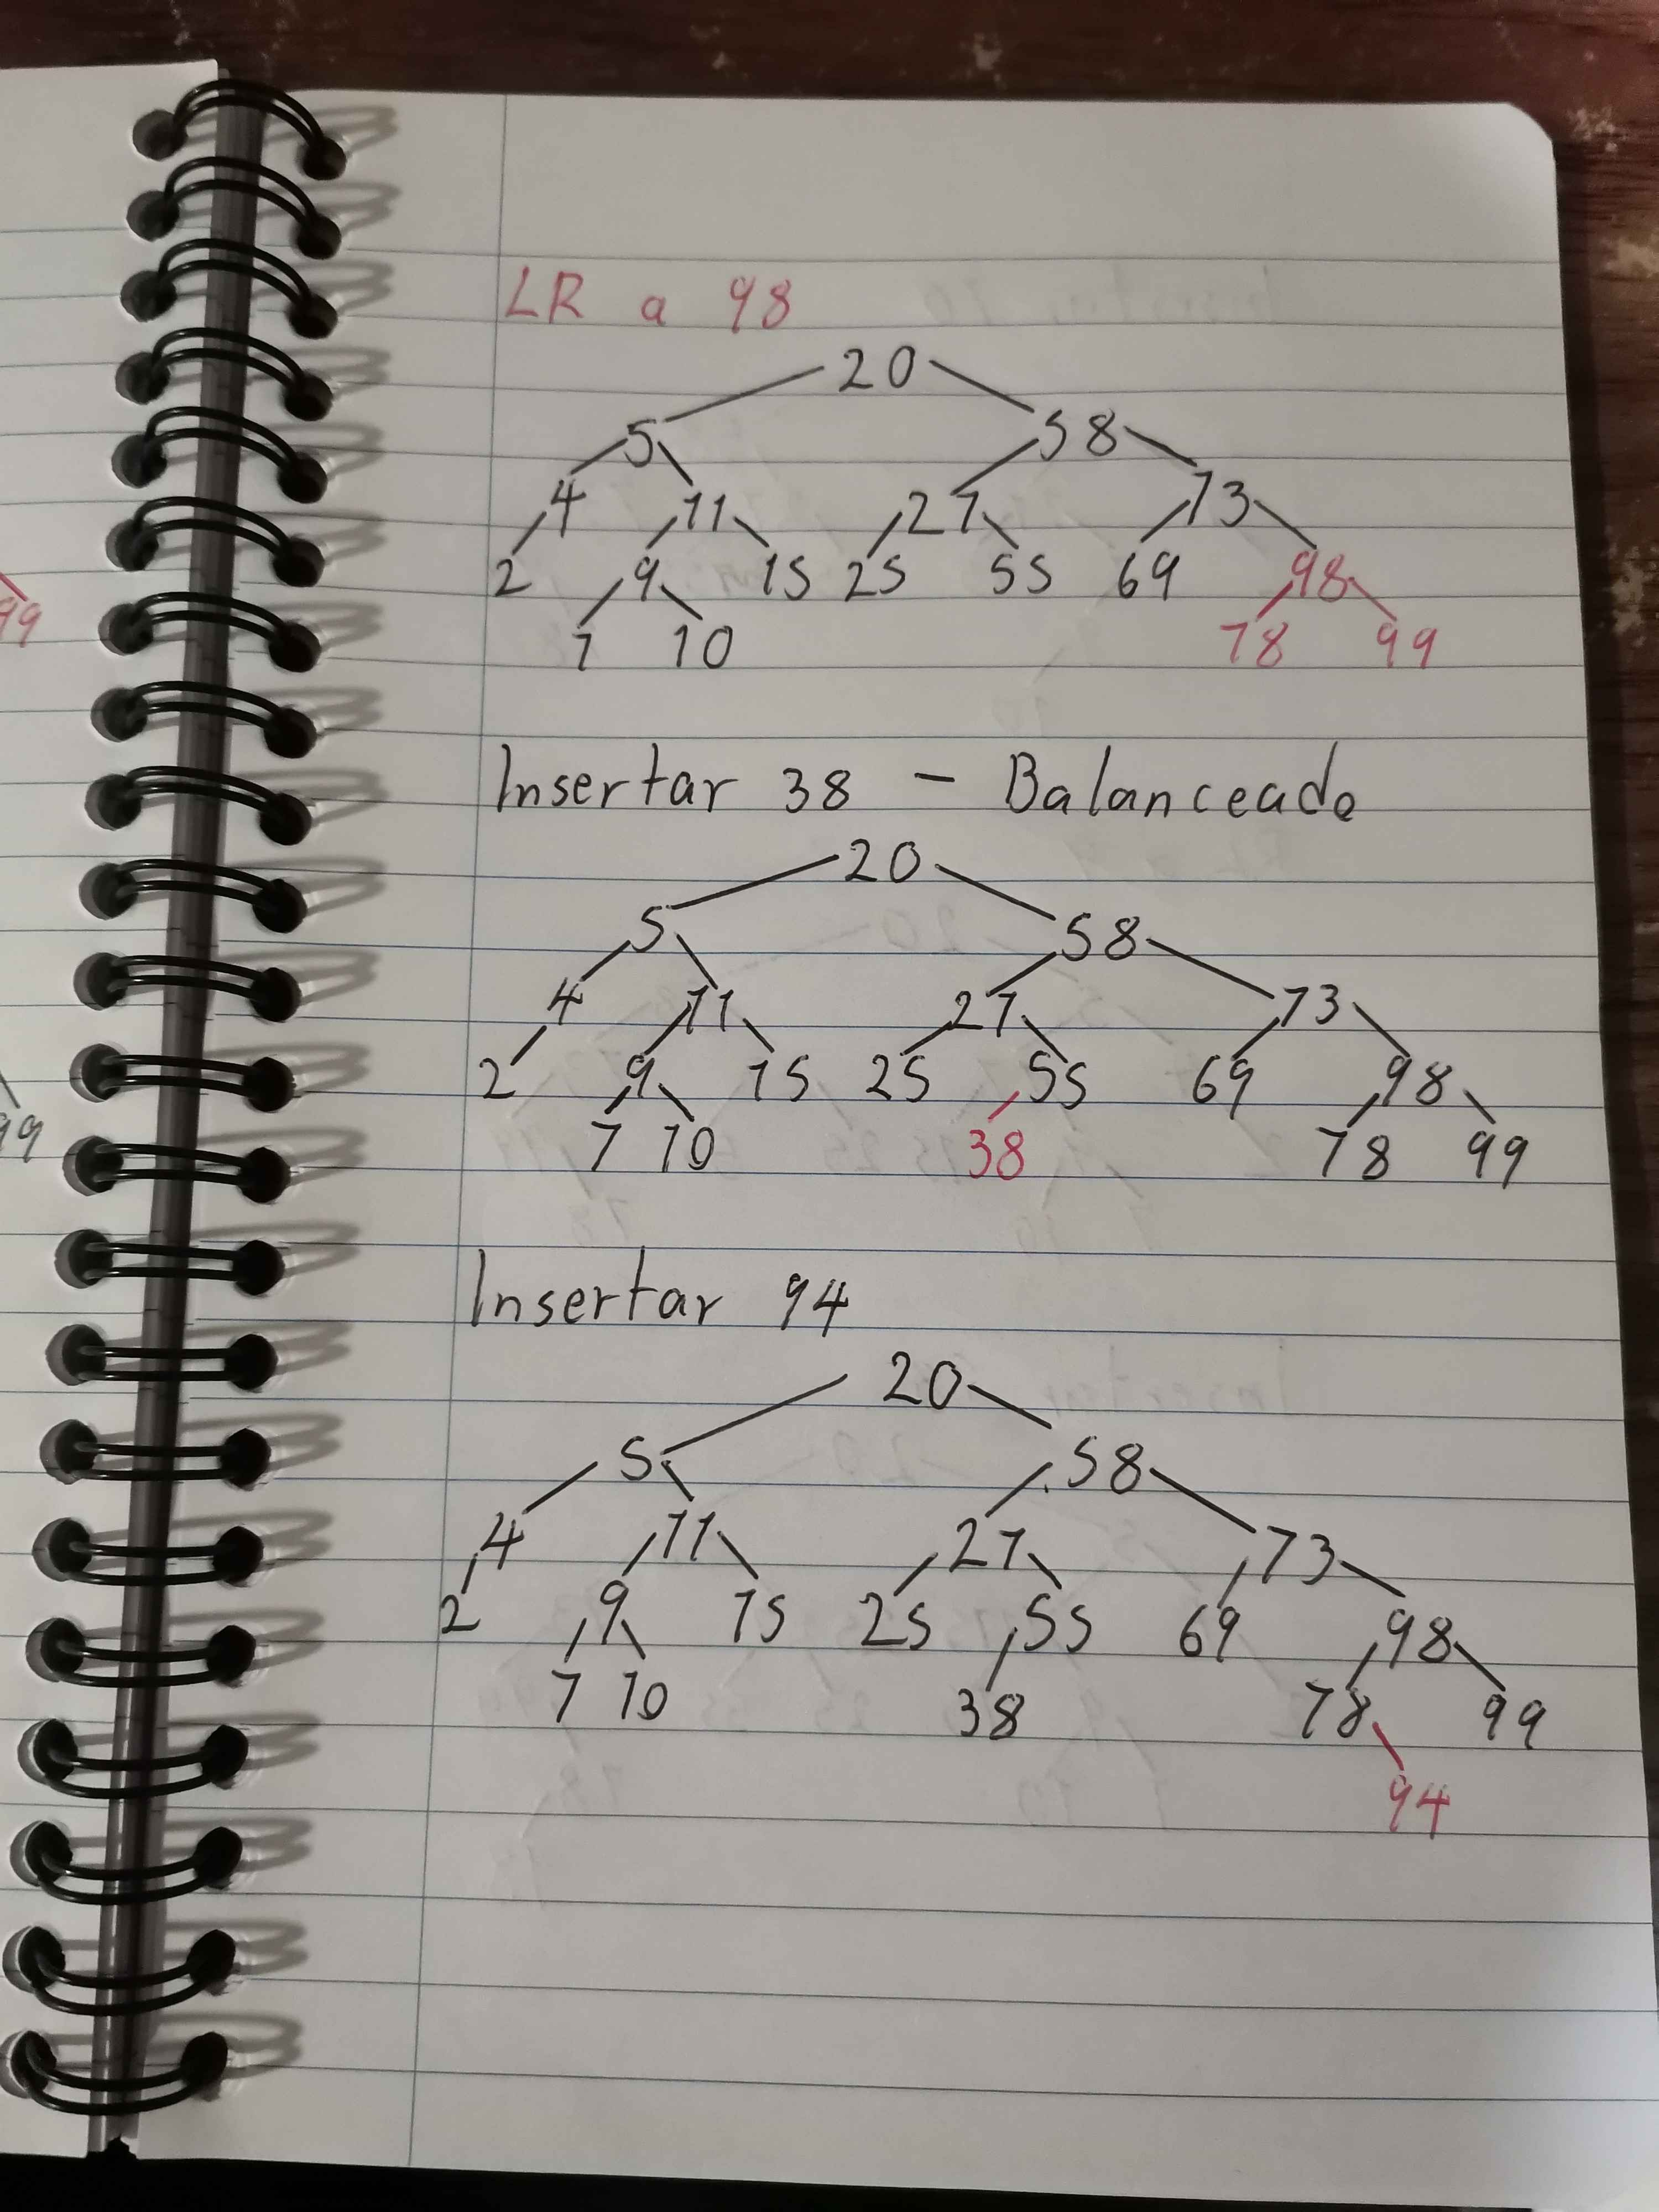 LR a 98
20
5 58
4 11 27 73
2 9 15 25 55 69 98
7 10 78 99
99
Insertar 38 - Balanceado
20
5 58
4 11 27 73
2 9 15 25 55 69 98
7 10 38 78 99
99
Insertar 94
20
5 58
4 11 27 73
2 9 15 25 55 69 98
7 10 38 78 99
94